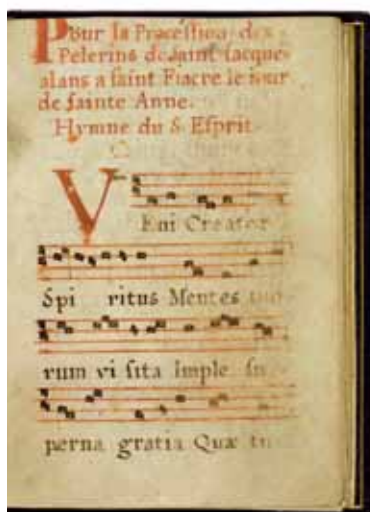 Pour la Procession des
Pelerins de saint Jacque
alans a saint Fiacre le jour
de sainte Anne.
Hymne du S. Esprit
VEni Creator
Spi ritus Mentes tuo
rum vi sita imple su
perna gratia Quæ tu